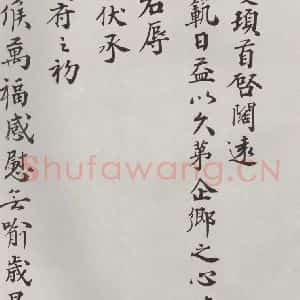 頊首啓闊遠
範日益以久第企鄉之心
召辱
伏承
府之初
候萬福感慰無喻歲
Shufawang.CN